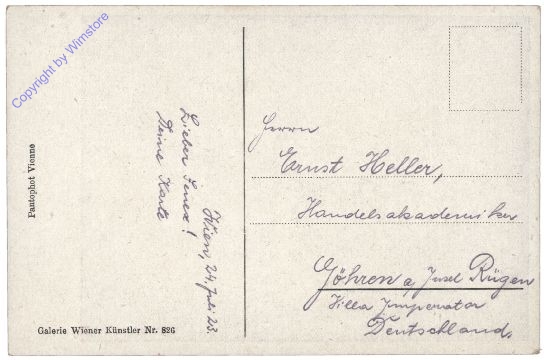 Copyright by Wimstore
Pantophot Vienne
Wien, 24. Juli 23.
Lieber Senex!
Deine Karte
Galerie Wiener Künstler Nr. 826
Herrn
Ernst Heller,
Handelsakademiker
Göhren a/ Insel Rügen
Villa Imperator
Deutschland.